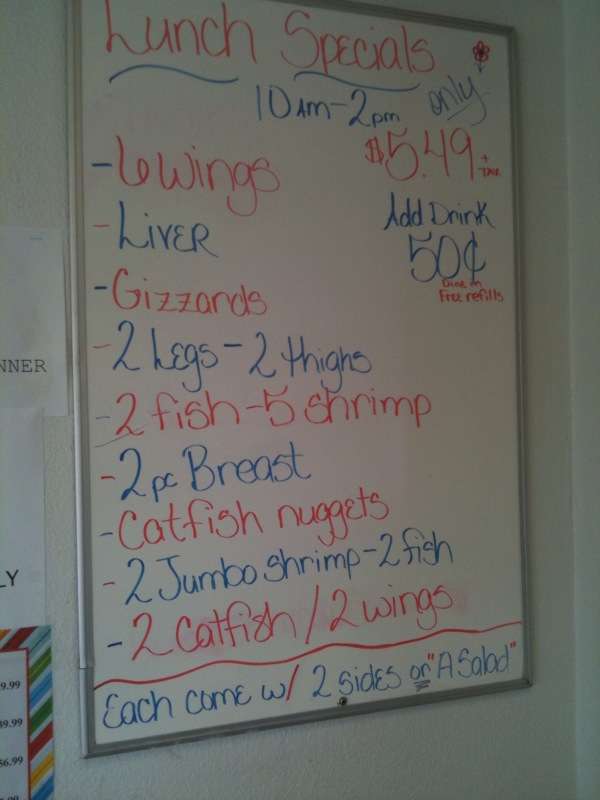 Lunch Specials
10Am-2pm only
$5.49 + Tax
-6 wings
Add Drink
50¢
Dine in
Free refills
-LivER
-Gizzards
-2 Legs-2 thighs
-2 fish-5 shrimp
-2pc Breast
-Catfish nuggets
-2 Jumbo shrimp-2 fish
-2 Catfish/2 wings
Each come w/ 2 sides or "A Salad"
NNER
LY
9.99
39.99
56.99